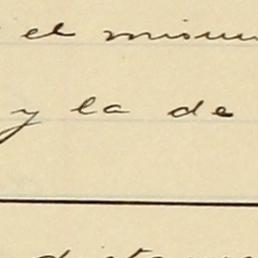 el mismo
y la de